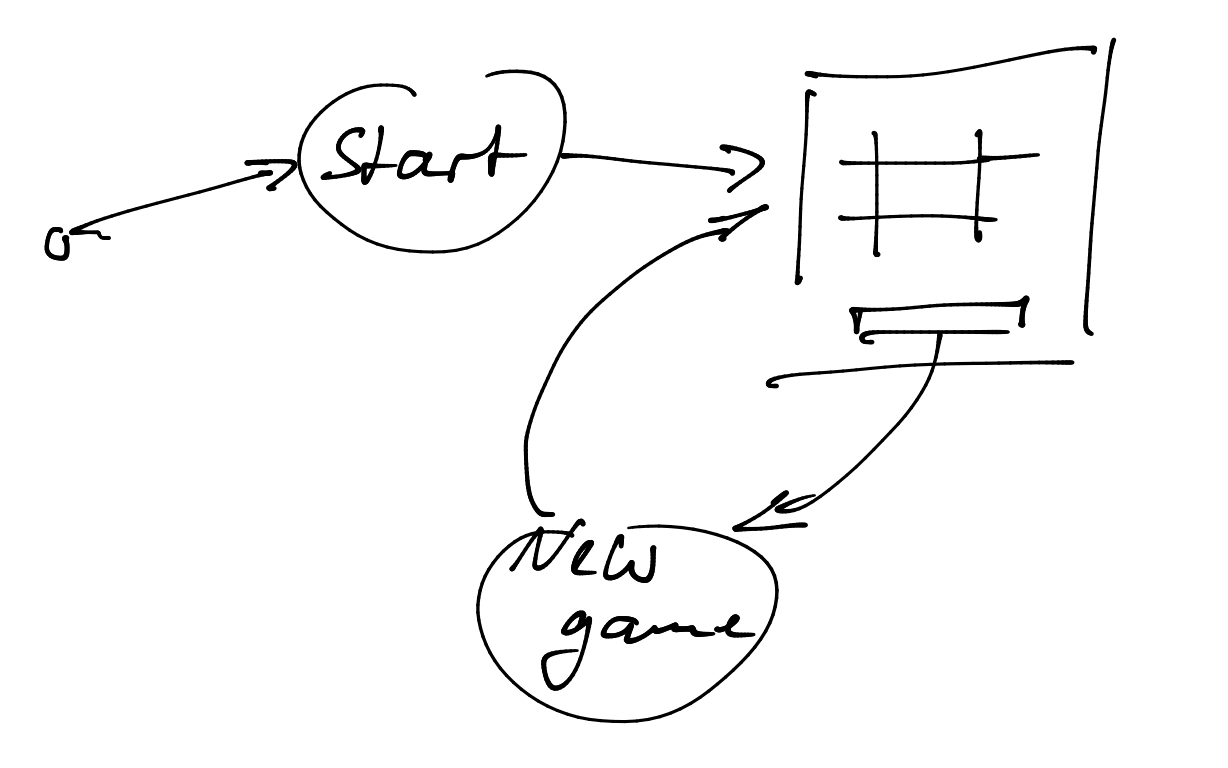 Start
New
game